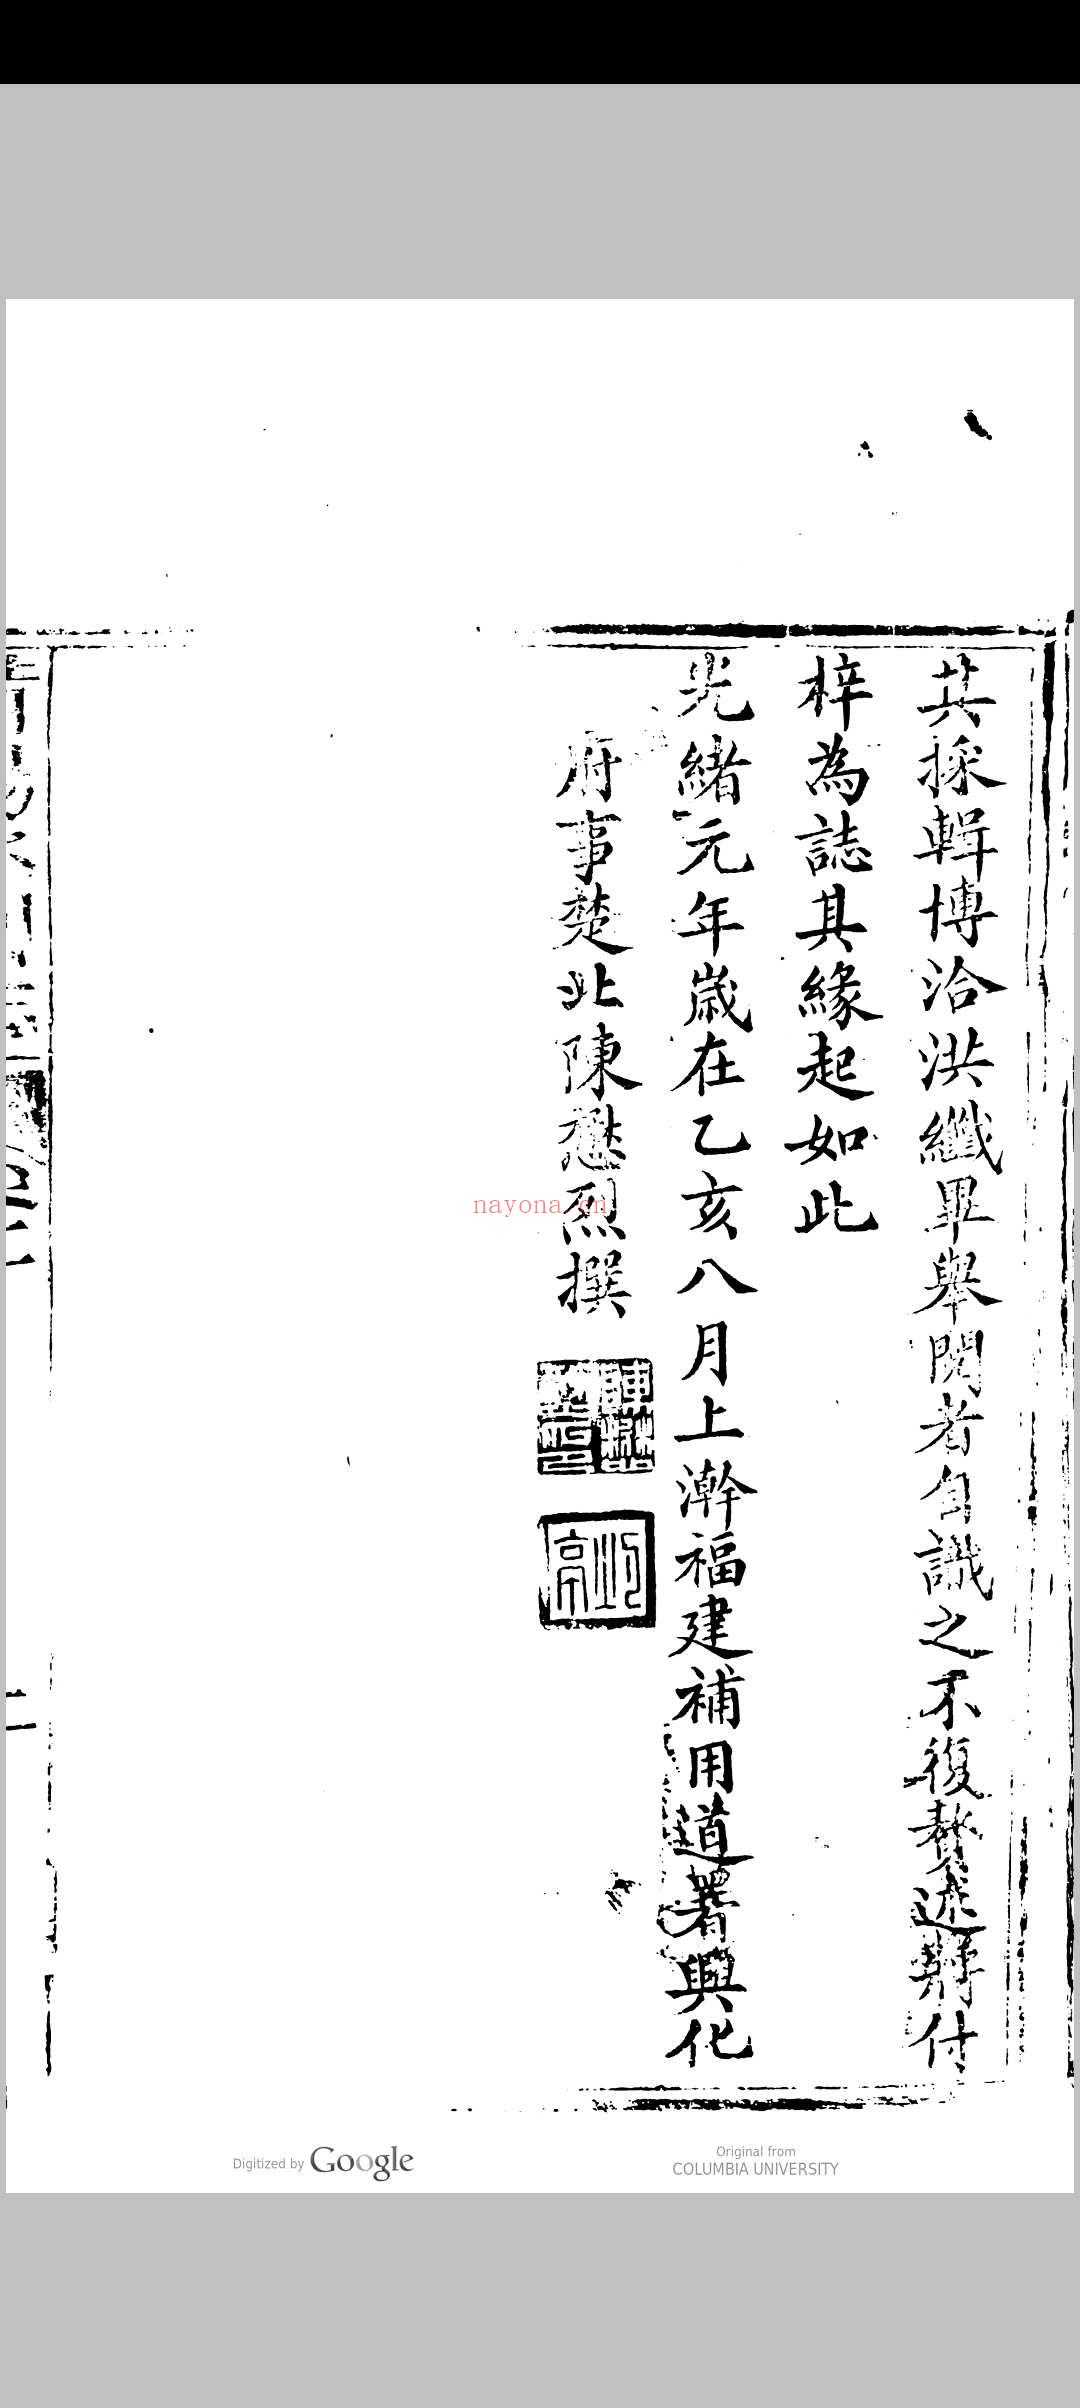 其採輯博洽洪纖畢舉閱者自識之不復贅述兹付
梓為誌其緣起如此
光緒元年歲在乙亥八月上澣福建補用道署興化
府事楚北陳懋烈撰
nayona.cn
Digitized by Google
Original from
COLUMBIA UNIVERSITY